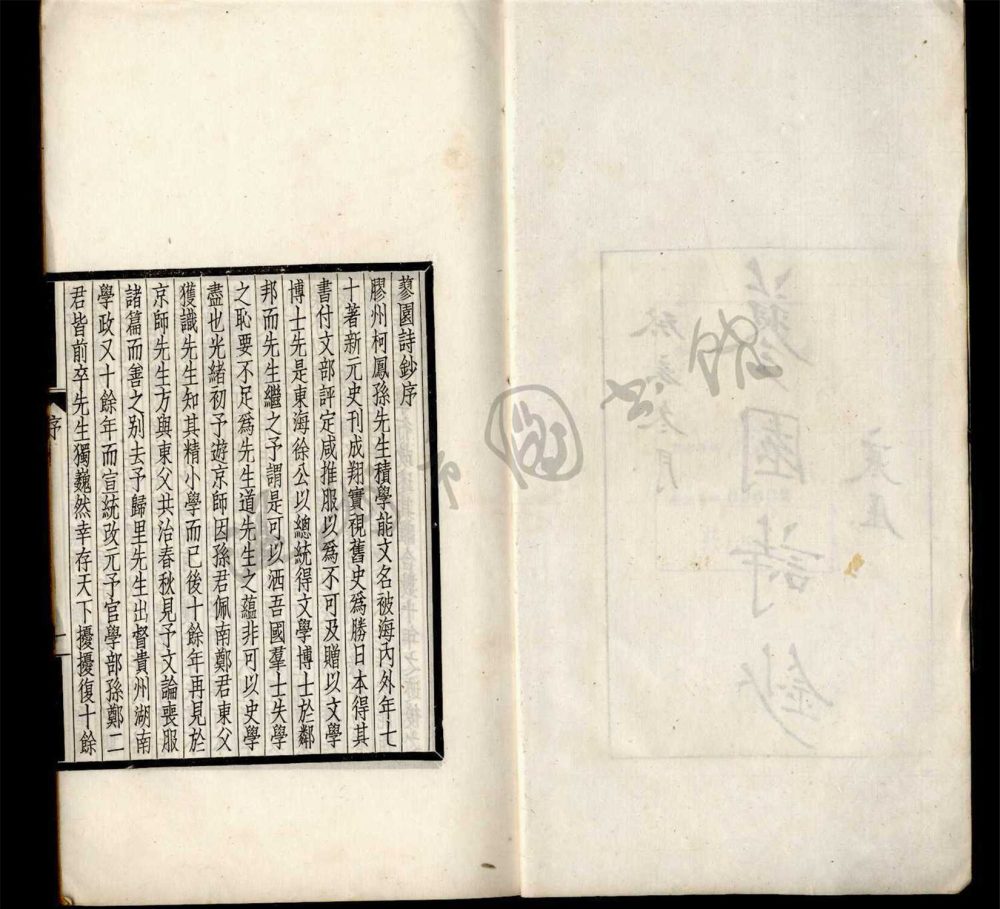 蓼園詩鈔序
膠州柯鳳孫先生積學能文名被海內外年七
十著新元史刊成翔實視舊史爲勝日本得其
書付文部評定咸推服以爲不可及贈以文學
博士先是東海徐公以總統得文學博士於鄰
邦而先生繼之予謂是可以洒吾國羣士失學
之恥要不足爲先生道先生之蘊非可以史學
盡也光緒初予遊京師因孫君佩南鄭君東父
獲識先生知其精小學而已後十餘年再見於
京師先生方與東父共治春秋見予文論喪服
諸篇而善之别去予歸里先生出督貴州湖南
學政又十餘年而宣統改元予官學部孫鄭二
君皆前卒先生獨巍然幸存天下擾擾復十餘
序
一
蓼園詩鈔